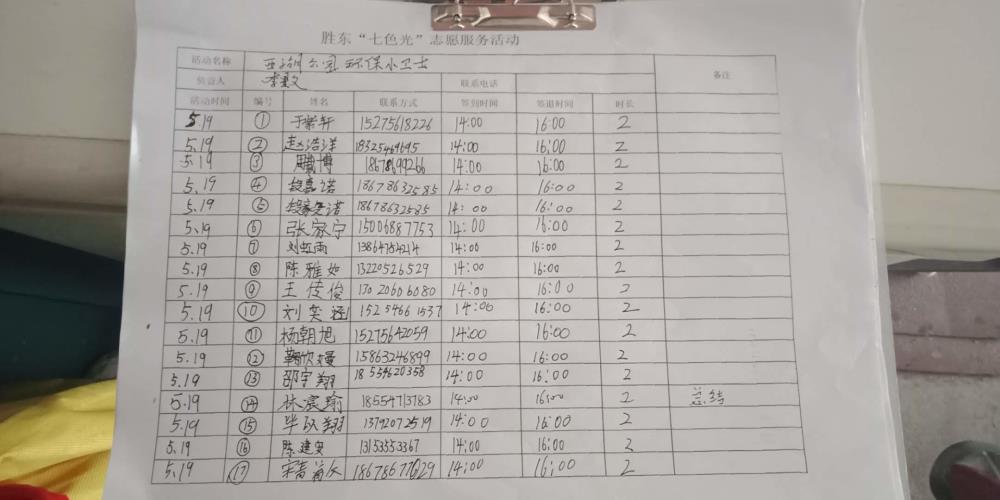 胜东“七色光”志愿服务活动
活动名称 西湖公园环保小卫士 备注
负责人 李 联系电话
活动时间 编号 姓名 联系方式 签到时间 签退时间 时长
5.19 ① 于紫轩 15275618226 14:00 16:00 2
5.19 ② 赵浩洋 18325469695 14:00 16:00 2
5.19 ③ 博 18678699266 14:00 16:00 2
5.19 ④ 段嘉诺 18678632585 14:00 16:00 2
5.19 ⑤ 段 诺 18678632585 14:00 16:00 2
5.19 ⑥ 张家宁 15006887753 14:00 16:00 2
5.19 ⑦ 刘虹雨 13864784214 14:00 16:00 2
5.19 ⑧ 陈雅如 13220526529 14:00 16:00 2
5.19 ⑨ 王传俊 14:00 16:00 2
5.19 ⑩ 刘奕涵 15254661537 14:00 16:00 2
5.19 ⑪ 杨朝旭 15275642059 14:00 16:00 2
5.19 ⑫ 欣 15863246899 14:00 16:00 2
5.19 ⑬ 邵宇翔 18554620358 14:00 16:00 2
5.19 ⑭ 林宸瑜 18554713783 14:00 16:00 2 总结
5.19 ⑮ 毕 翔 13792072519 14:00 16:00 2
5.19 ⑯ 陈建安 13153553367 14:00 16:00 2
5.19 ⑰ 宋 18678677629 14:00 16:00 2